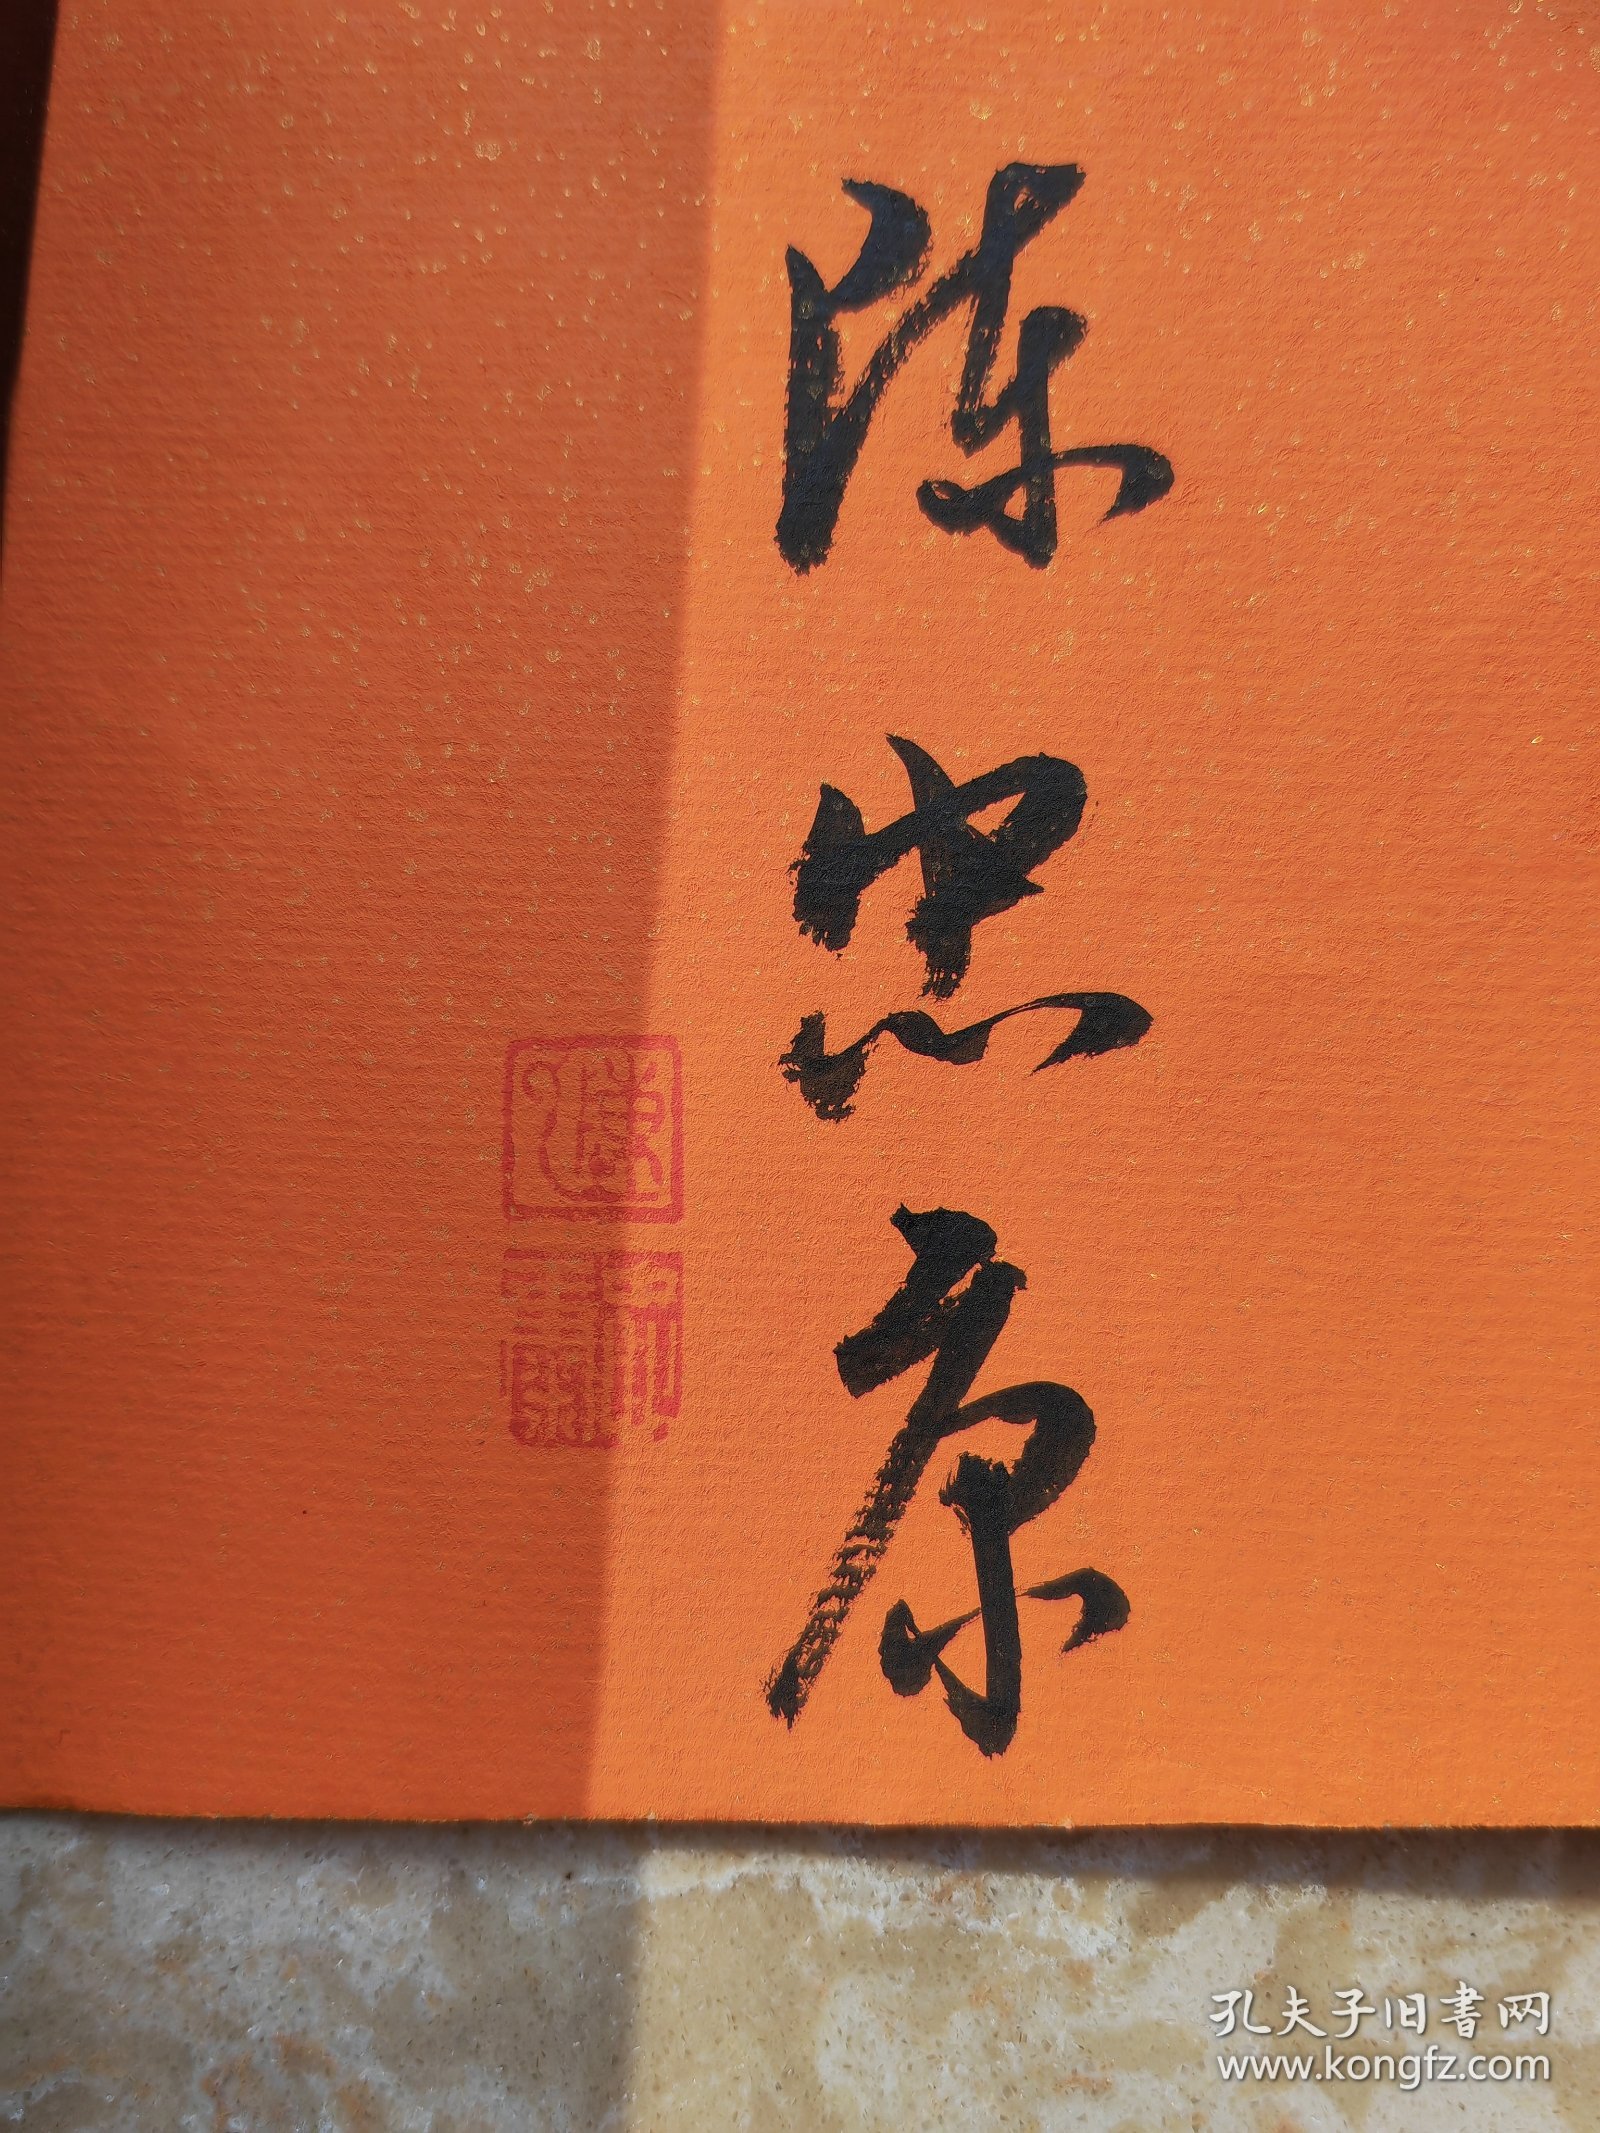 陈忠康
孔夫子旧書网
www.kongfz.com